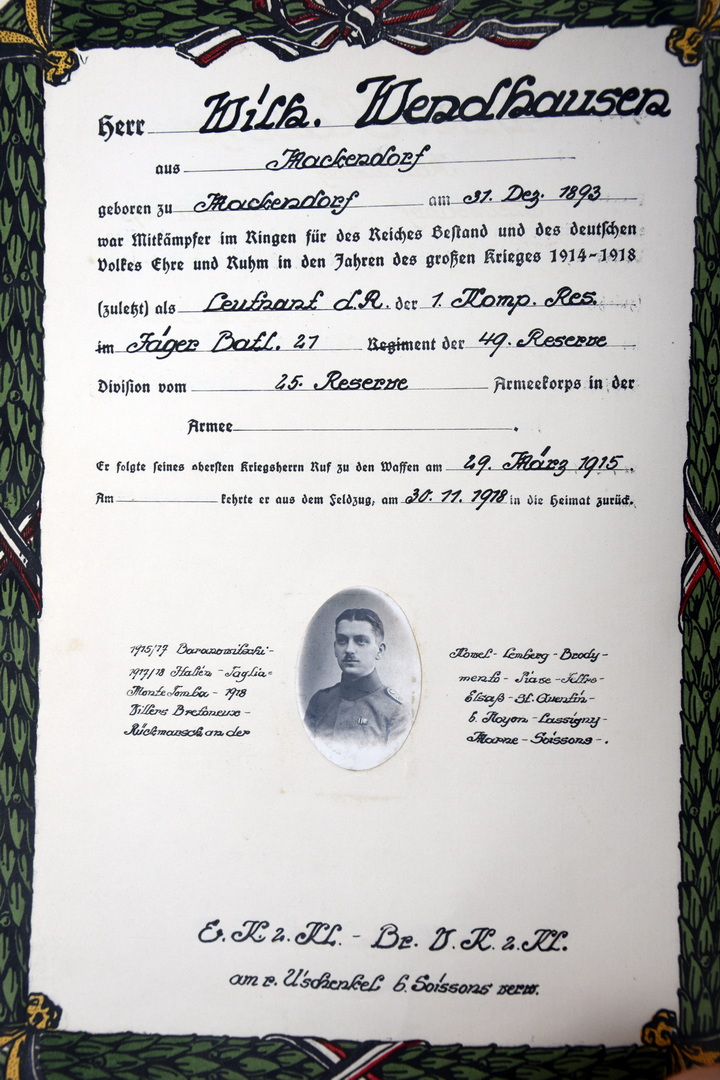 Herr Wilh. Wendhausen
aus Mackendorf
geboren zu Mackendorf am 31. Dez. 1893
war Mitkämpfer im Ringen für des Reiches Bestand und des deutschen
Volkes Ehre und Ruhm in den Jahren des großen Krieges 1914-1918
(zuletzt) als Leutnant d.R. der 1. Komp. Res.
im Jäger Batl. 27 Regiment der 49. Reserve
Division vom 25. Reserve Armeekorps in der
Armee .
Er folgte seines obersten Kriegsherrn Ruf zu den Waffen am 29. März 1915.
Am kehrte er aus dem Feldzug, am 30. 11. 1918 in die Heimat zurück.
1915/17 Baranowitschi - Kowel - Lemberg - Brody -
1917/18 Italien - Taglia= mento - Piave - Feltre -
Monte Tomba - 1918 Elsaß - St. Quentin -
Villers Bretoneux - b. Noyon - Lassigny -
Rückmarsch an der Marne - Soissons - .
E. K. 2. Kl. - Br. V. K. 2. Kl.
am r. U'schenkel b. Soissons verw.